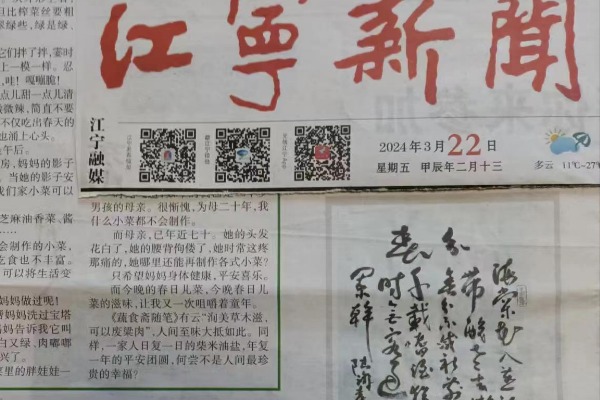 江寧新聞
江宁融媒
2024年3月22日
星期五 甲辰年二月十三
多云 11℃~27℃
男孩的母亲。很惭愧,为母二十年,我
什么小菜都不会制作。
而母亲,已年近七十。她的头发
花白了,她的腰背佝偻了,她时常这疼
那痛的,她哪里还能再制作各式小菜?
只希望妈妈身体健康,平安喜乐。
而今晚的春日儿菜,今晚春日儿
菜的滋味,让我又一次咀嚼着童年。
《蔬食斋随笔》有云“洵美草木滋,
可以废粱肉”,人间至味大抵如此。同
样,一家人日复一日的柴米油盐,年复
一年的平安团圆,何尝不是人间最珍
贵的幸福?
且比榨菜丝要粗
绿些,绿是绿、
它们拌了拌,霎时
上一模一样。忍
,哇!嘎嘣脆!
点儿甜一点儿清
微辣,简直不要
不仅吃出春天的
也涌上心头。
午后。
房,妈妈的影子
当她的影子安
我们家小菜可以
芝麻油香菜、酱
会制作的小菜,
吃食也不丰富。
可以将生活变
妈妈做过呢!
帮妈妈洗过宝塔
妈妈告诉我它叫
白又绿、肉嘟嘟
兴了。
里的胖娃娃一